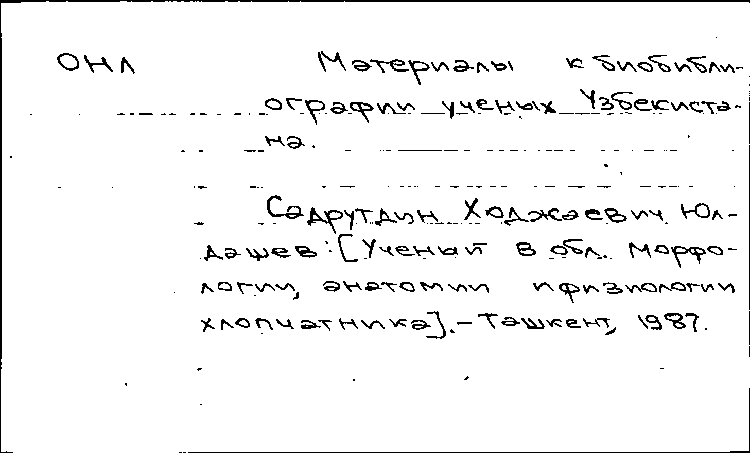 ОНЛ Материалы к биобибли-
ографии ученых Узбекиста-
на.
Садрутдин Ходжаевич Юл-
дашев: [Ученый в обл. морфо-
логии, анатомии и физиологии
хлопчатника]. - Ташкент, 1987.